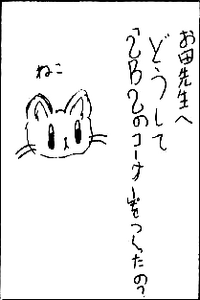 お田先生へ
どうして
「2B2のコーナーをつくったの?
ねこ